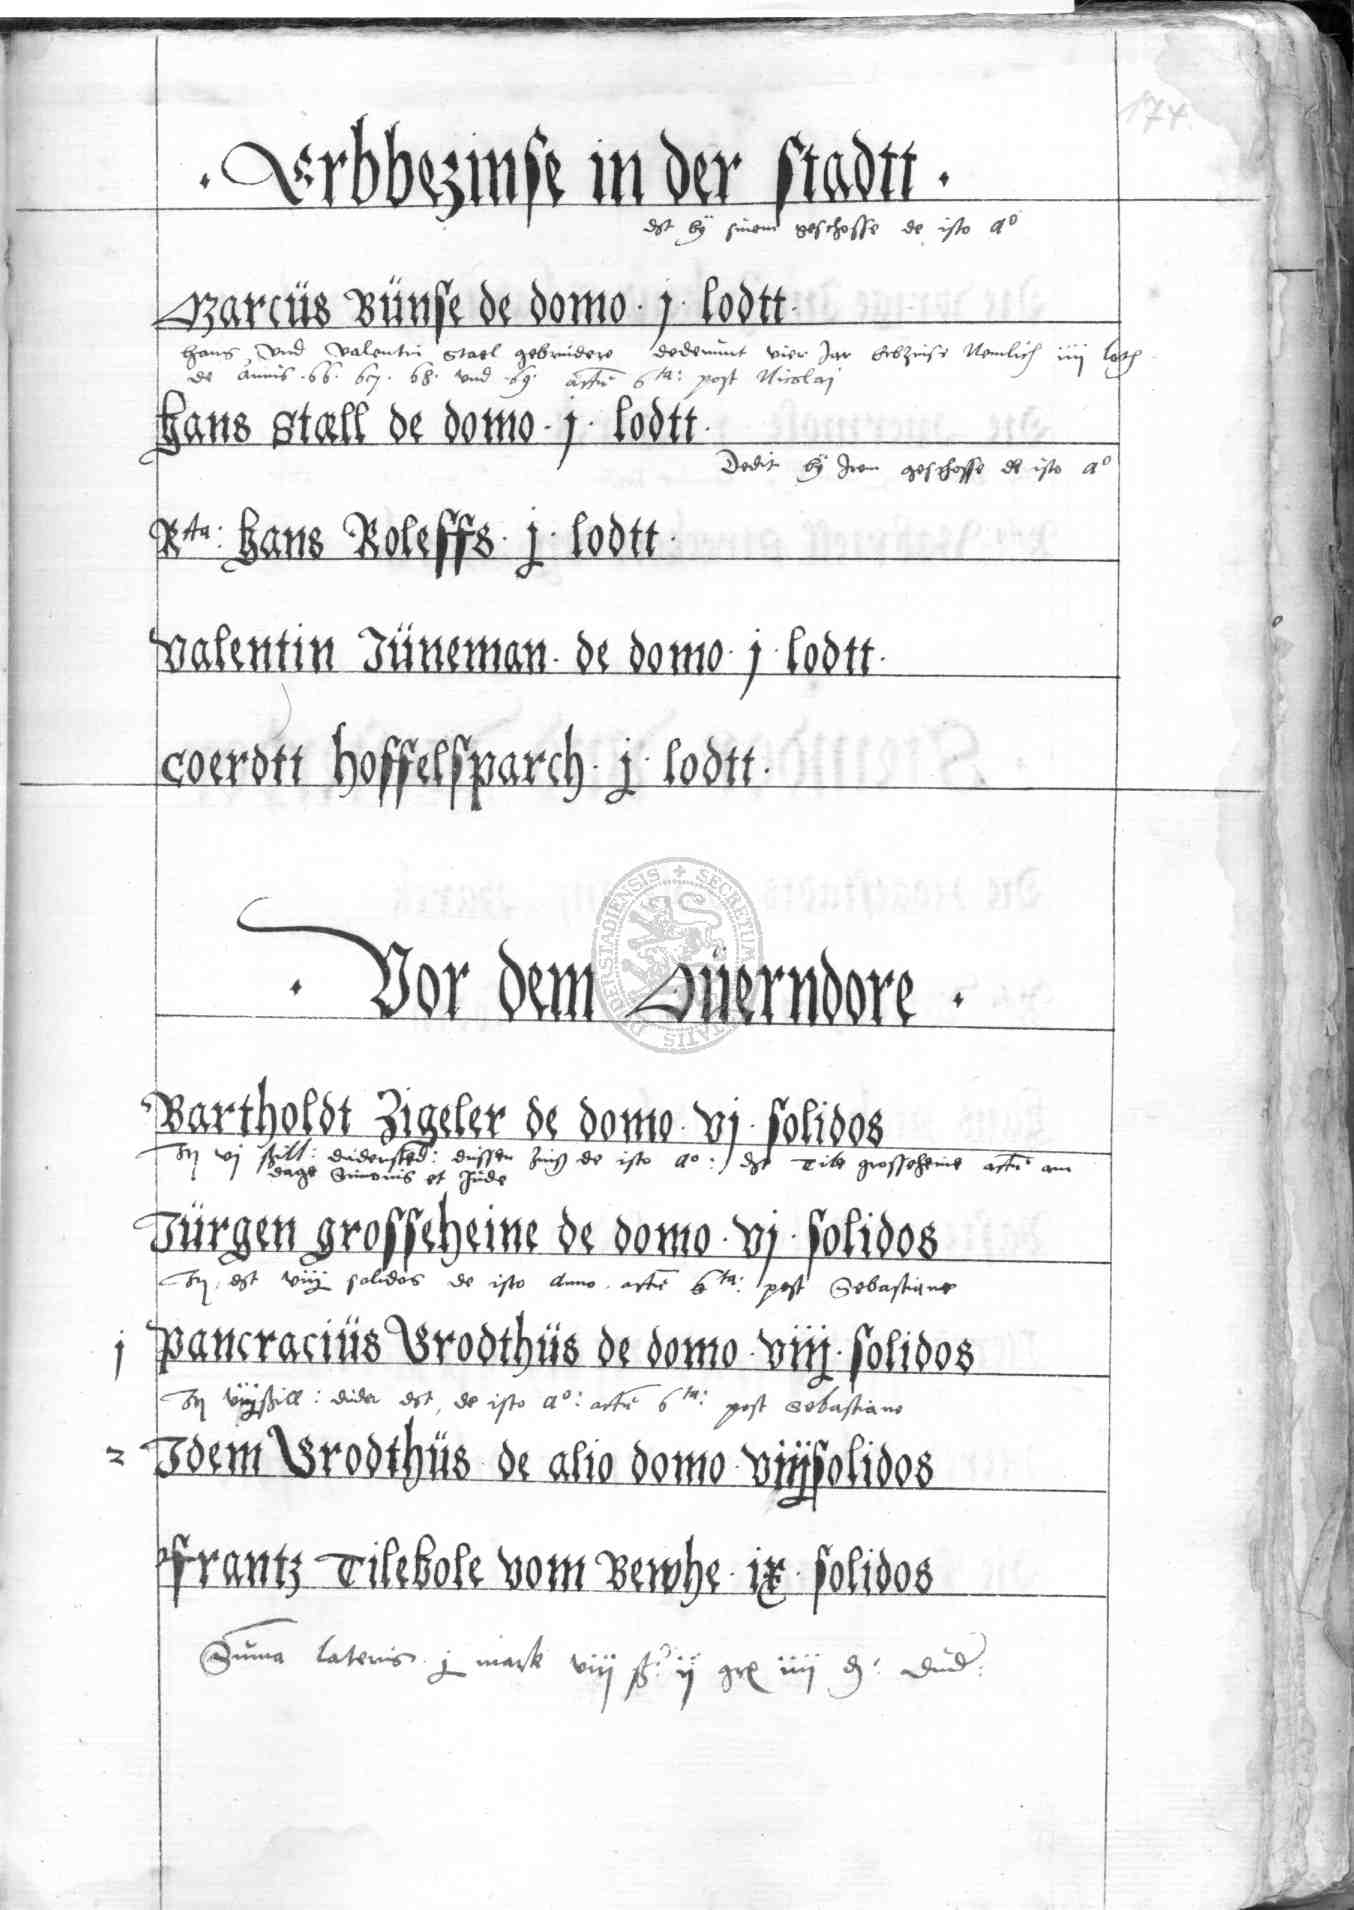 174.
· Erbbezinse in der stadtt ·
dst bÿ sinem geschosse de isto aº
Marcüs Bünse de domo · j · lodtt ·
Hans vnd Valentin Stael gebrudere dederunt vier Jar Erbzinse Nemlich iiij loth
de Annis · 66 · 67 · 68 · vnd · 69 · actū 6ta: post Nicolaj
Hans Stæll de domo · j · lodtt ·
Dedit bÿ Irem geschosse de isto aº
Rta: Hans Roleffs · j · lodtt ·
Valentin Jüneman · de domo · j · lodtt ·
Coerdtt Hoffelsparch · j · lodtt ·
· Vor dem Süerndore ·
SECRETUM DUDERSTADIENSIS
Bartholdt Zigeler de domo · vj · solidos
vj ßill: dudersted: dussen zinß de isto aº: dst Tile grosseheine actū am
dage Simonis et Jude
Jürgen grosseheine de domo · vj · solidos
dst viij solidos de isto Anno · actū 6ta: post Sebastiane
j Pancracius Brodthüs de domo · viij · solidos
viijßill: duder dst, de isto aº: actū 6ta: post Sebastiane
2 Idem Brodthüs de alio domo · viijsolidos
Frantz Tilebole vom Bewhe · ix · solidos
Suma lateris · j mark viij ß: ij grē iiij ₰: Dud: